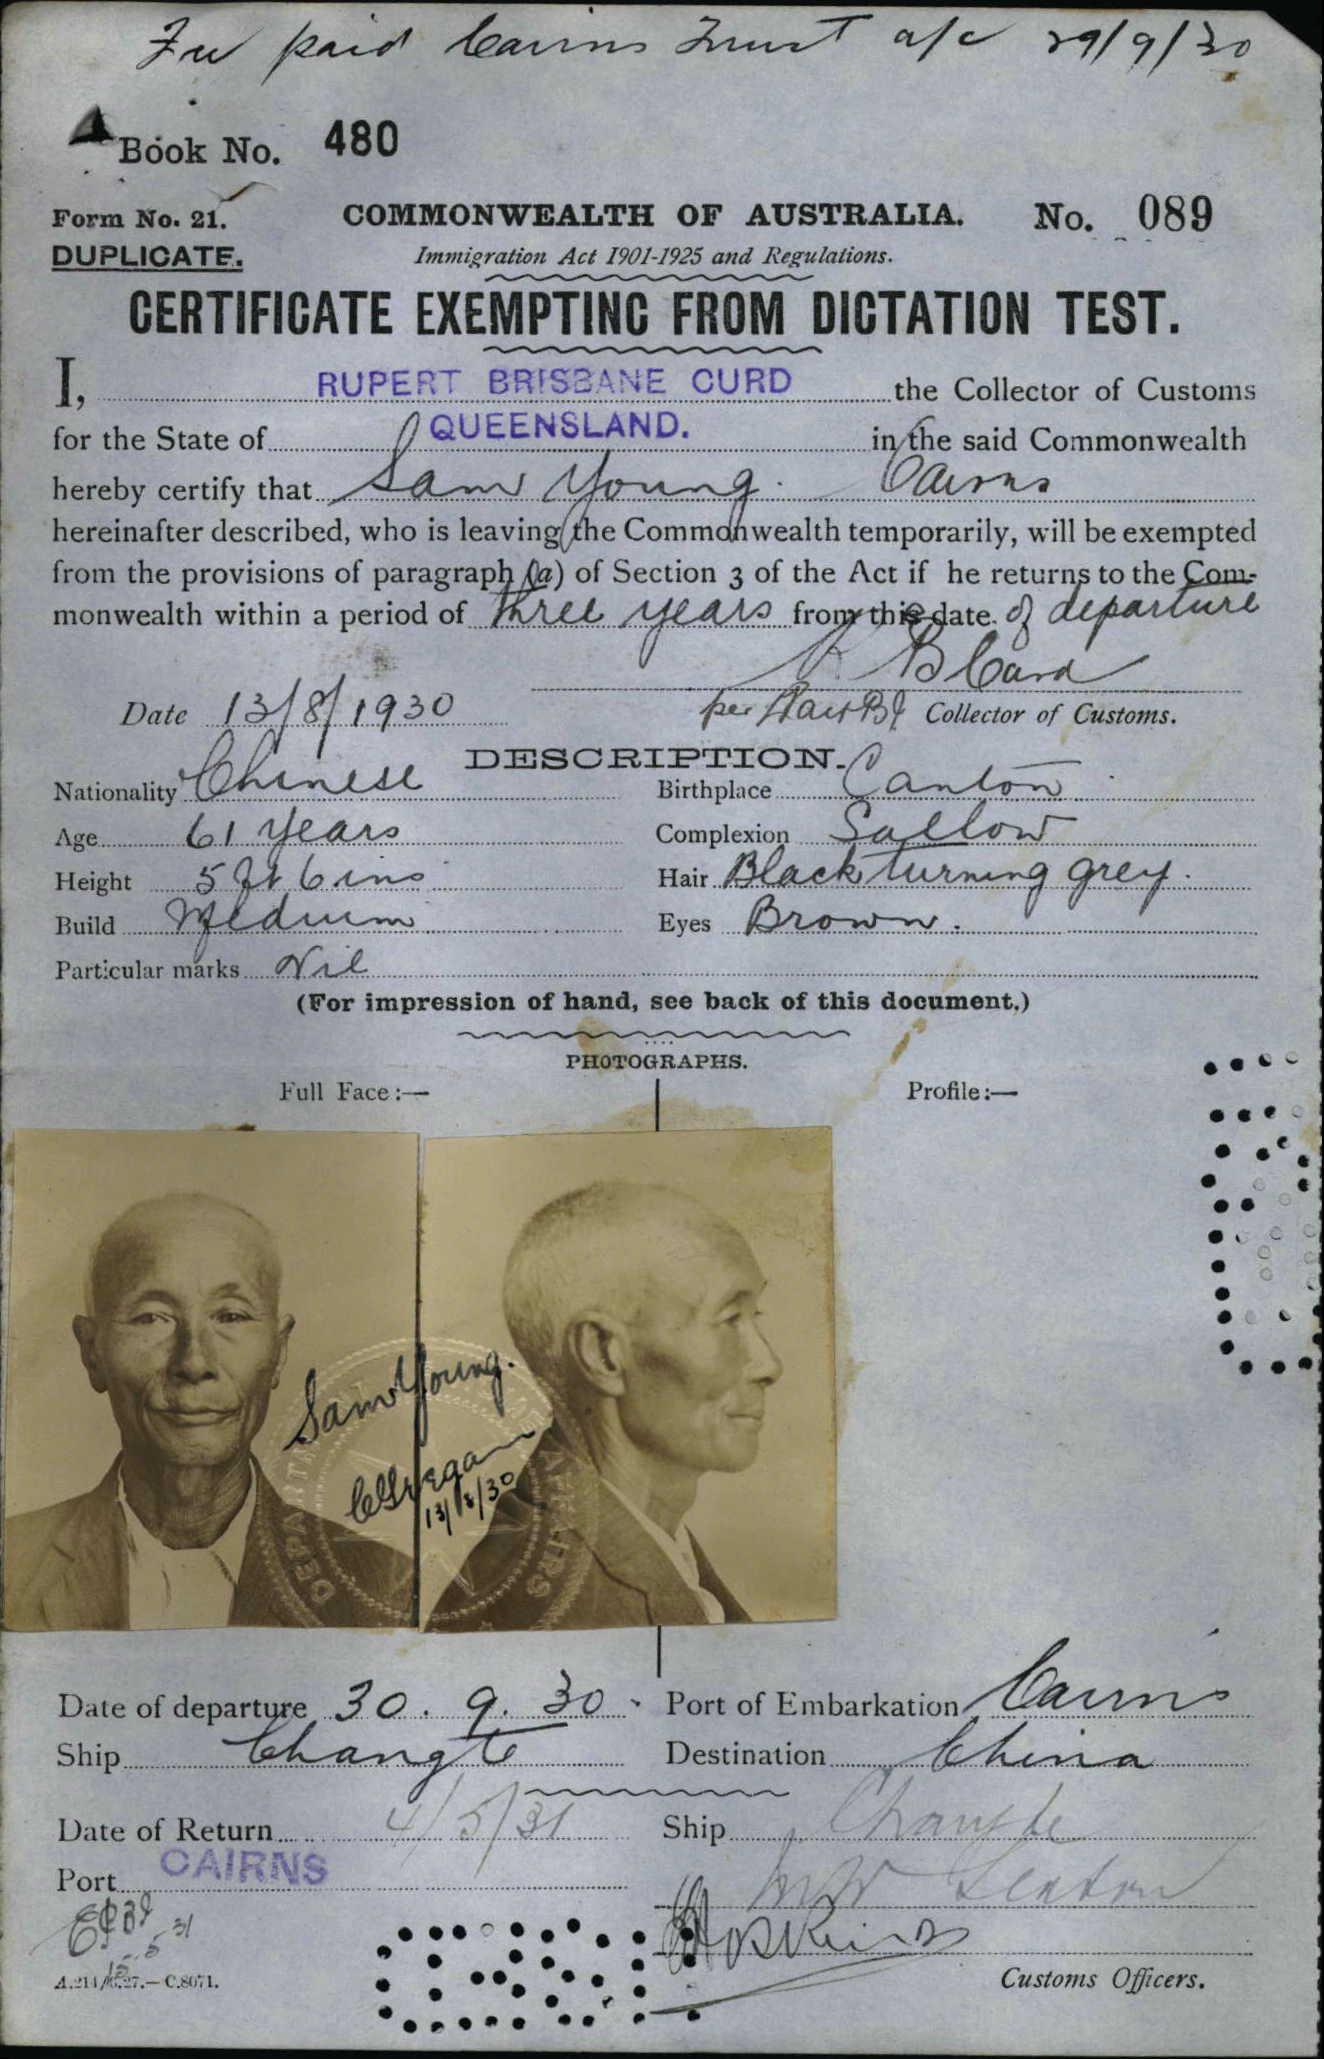 Fee paid Cairns Trust a/c 29/9/30
Book No. 480
Form No. 21. COMMONWEALTH OF AUSTRALIA. No. 089
DUPLICATE. Immigration Act 1901-1925 and Regulations.
CERTIFICATE EXEMPTING FROM DICTATION TEST.
I, RUPERT BRISBANE CURD the Collector of Customs
for the State of QUEENSLAND. in the said Commonwealth
hereby certify that Sam Young. Cairns
hereinafter described, who is leaving the Commonwealth temporarily, will be exempted
from the provisions of paragraph (a) of Section 3 of the Act if he returns to the Com-
monwealth within a period of three years from this date of departure
R B Curd
Date 13/8/1930 per Collector of Customs.
DESCRIPTION.
Nationality Chinese Birthplace Canton
Age 61 years Complexion Sallow
Height 5 ft 6 ins Hair Black turning grey.
Build Medium Eyes Brown.
Particular marks Nil
(For impression of hand, see back of this document.)
PHOTOGRAPHS.
Full Face:— Profile:—
Sam Young.
13/8/30
Date of departure 30.9.30. Port of Embarkation Cairns
Ship Changte Destination China
Date of Return 4/5/31 Ship Changte
Port CAIRNS
15.5.31
Customs Officers.